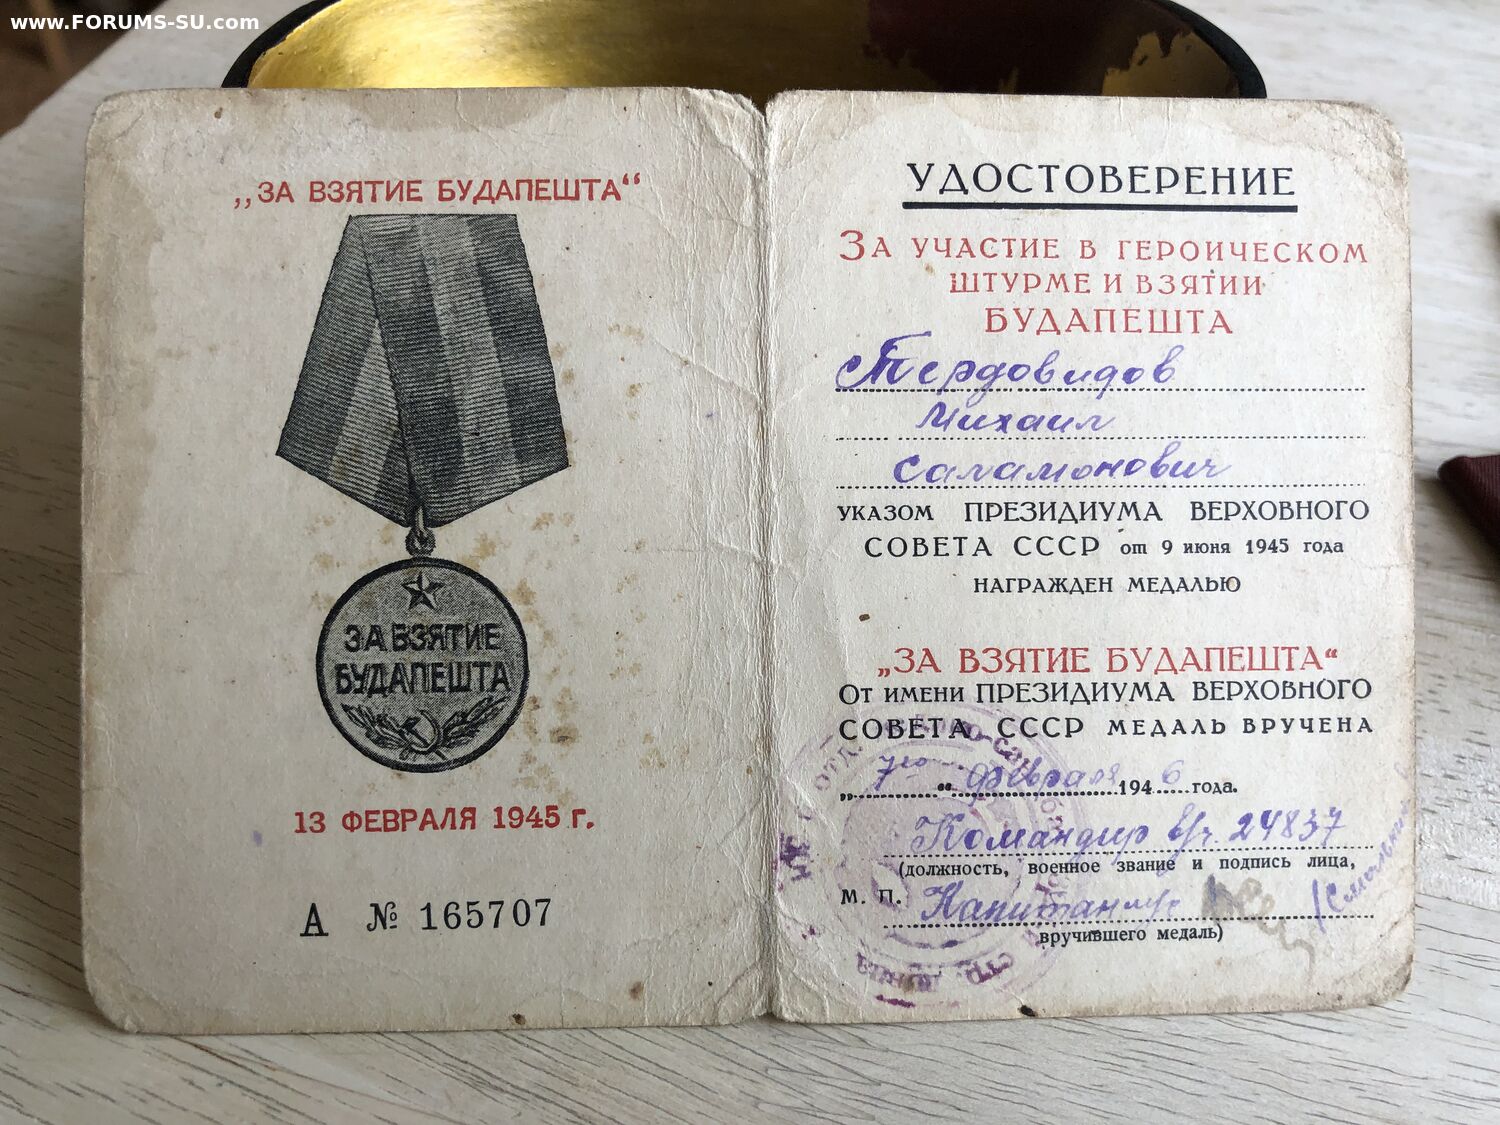 www.FORUMS-SU.com
„ЗА ВЗЯТИЕ БУДАПЕШТА“
ЗА ВЗЯТИЕ
БУДАПЕШТА
13 ФЕВРАЛЯ 1945 г.
А № 165707
УДОСТОВЕРЕНИЕ
ЗА УЧАСТИЕ В ГЕРОИЧЕСКОМ
ШТУРМЕ И ВЗЯТИИ
БУДАПЕШТА
Михаил
Саламонович
УКАЗОМ ПРЕЗИДИУМА ВЕРХОВНОГО
СОВЕТА СССР от 9 июня 1945 года
НАГРАЖДЕН МЕДАЛЬЮ
„ЗА ВЗЯТИЕ БУДАПЕШТА“
ОТ ИМЕНИ ПРЕЗИДИУМА ВЕРХОВНОГО
СОВЕТА СССР МЕДАЛЬ ВРУЧЕНА
„7го“ февраля 1946 года.
Командир в/ч. 24837
(должность, военное звание и подпись лица,
М. П. Капитан
вручившего медаль)